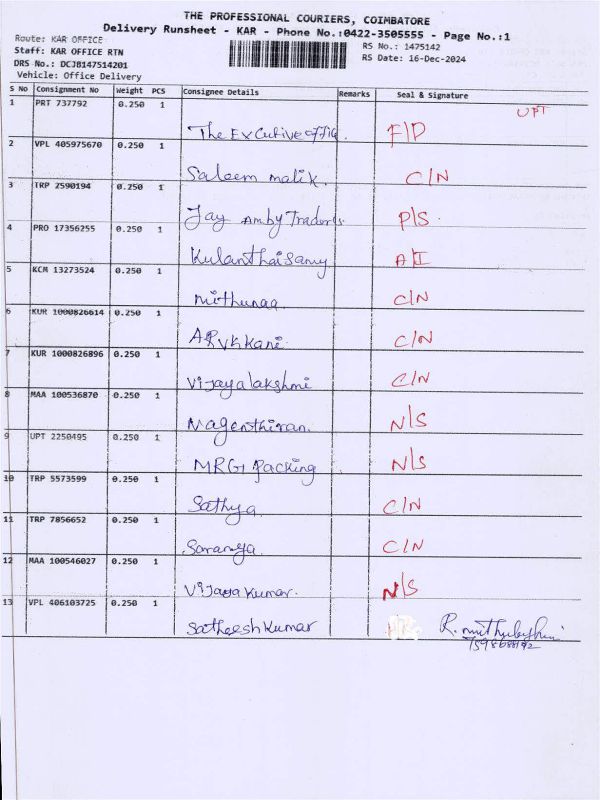 THE PROFESSIONAL COURIERS, COIMBATORE
Delivery Runsheet - KAR - Phone No.:0422-3505555 - Page No.:1
Route: KAR OFFICE
RS No.: 1475142
Staff: KAR OFFICE RTN
RS Date: 16-Dec-2024
DRS No.: DCJB147514201
Vehicle: Office Delivery
S No Consignment No Weight PCS Consignee Details Remarks Seal & Signature
1 PRT 737792 0.250 1 UPT
The Excutive offic. F/D
2 VPL 405975670 0.250 1
Saleem malik. C/N
3 TRP 2590194 0.250 1
Jay Amby Traders P/S.
4 PRO 17356255 0.250 1
Kulanthaisamy A/I
5 KCM 13273524 0.250 1
mithunaa C/N
6 KUR 1000826614 0.250 1
C/N
7 KUR 1000826896 0.250 1
Vijayalakshmi C/N
8 MAA 100536870 0.250 1
Nagenthiran. N/S
9 UPT 2250495 0.250 1
MRG packing N/S
10 TRP 5573599 0.250 1
Sathya C/N
11 TRP 7856652 0.250 1
Saranya C/N
12 MAA 100546027 0.250 1
Vijaya Kumar. N/S
13 VPL 406103725 0.250 1
Satheesh Kumar R.